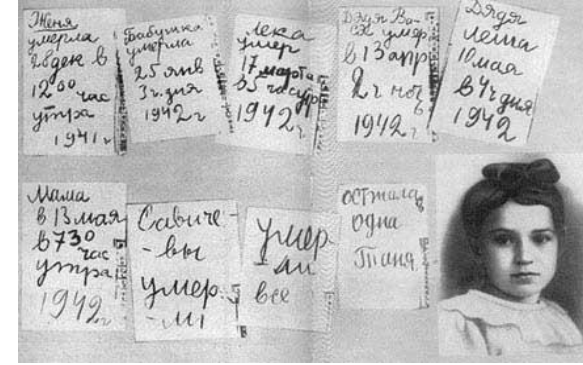 Женя
умерла
28 дек в
12 00 час
утра
1941 г
Бабушка
умерла
25 янв
3 ч. дня
1942 г
Лека
умер
17 марта
в 5 час утр
1942 г
Дядя Ва-
ся умер
в 13 апр
2 ч ноч
1942 г
Дядя
Леша
10 мая
в 4 ч дня
1942
Мама
в 13 мая
в 730
час
утра
1942 г
Савиче-
-вы
умер-
-ли
умер
-ли
все
осталась
одна
Таня